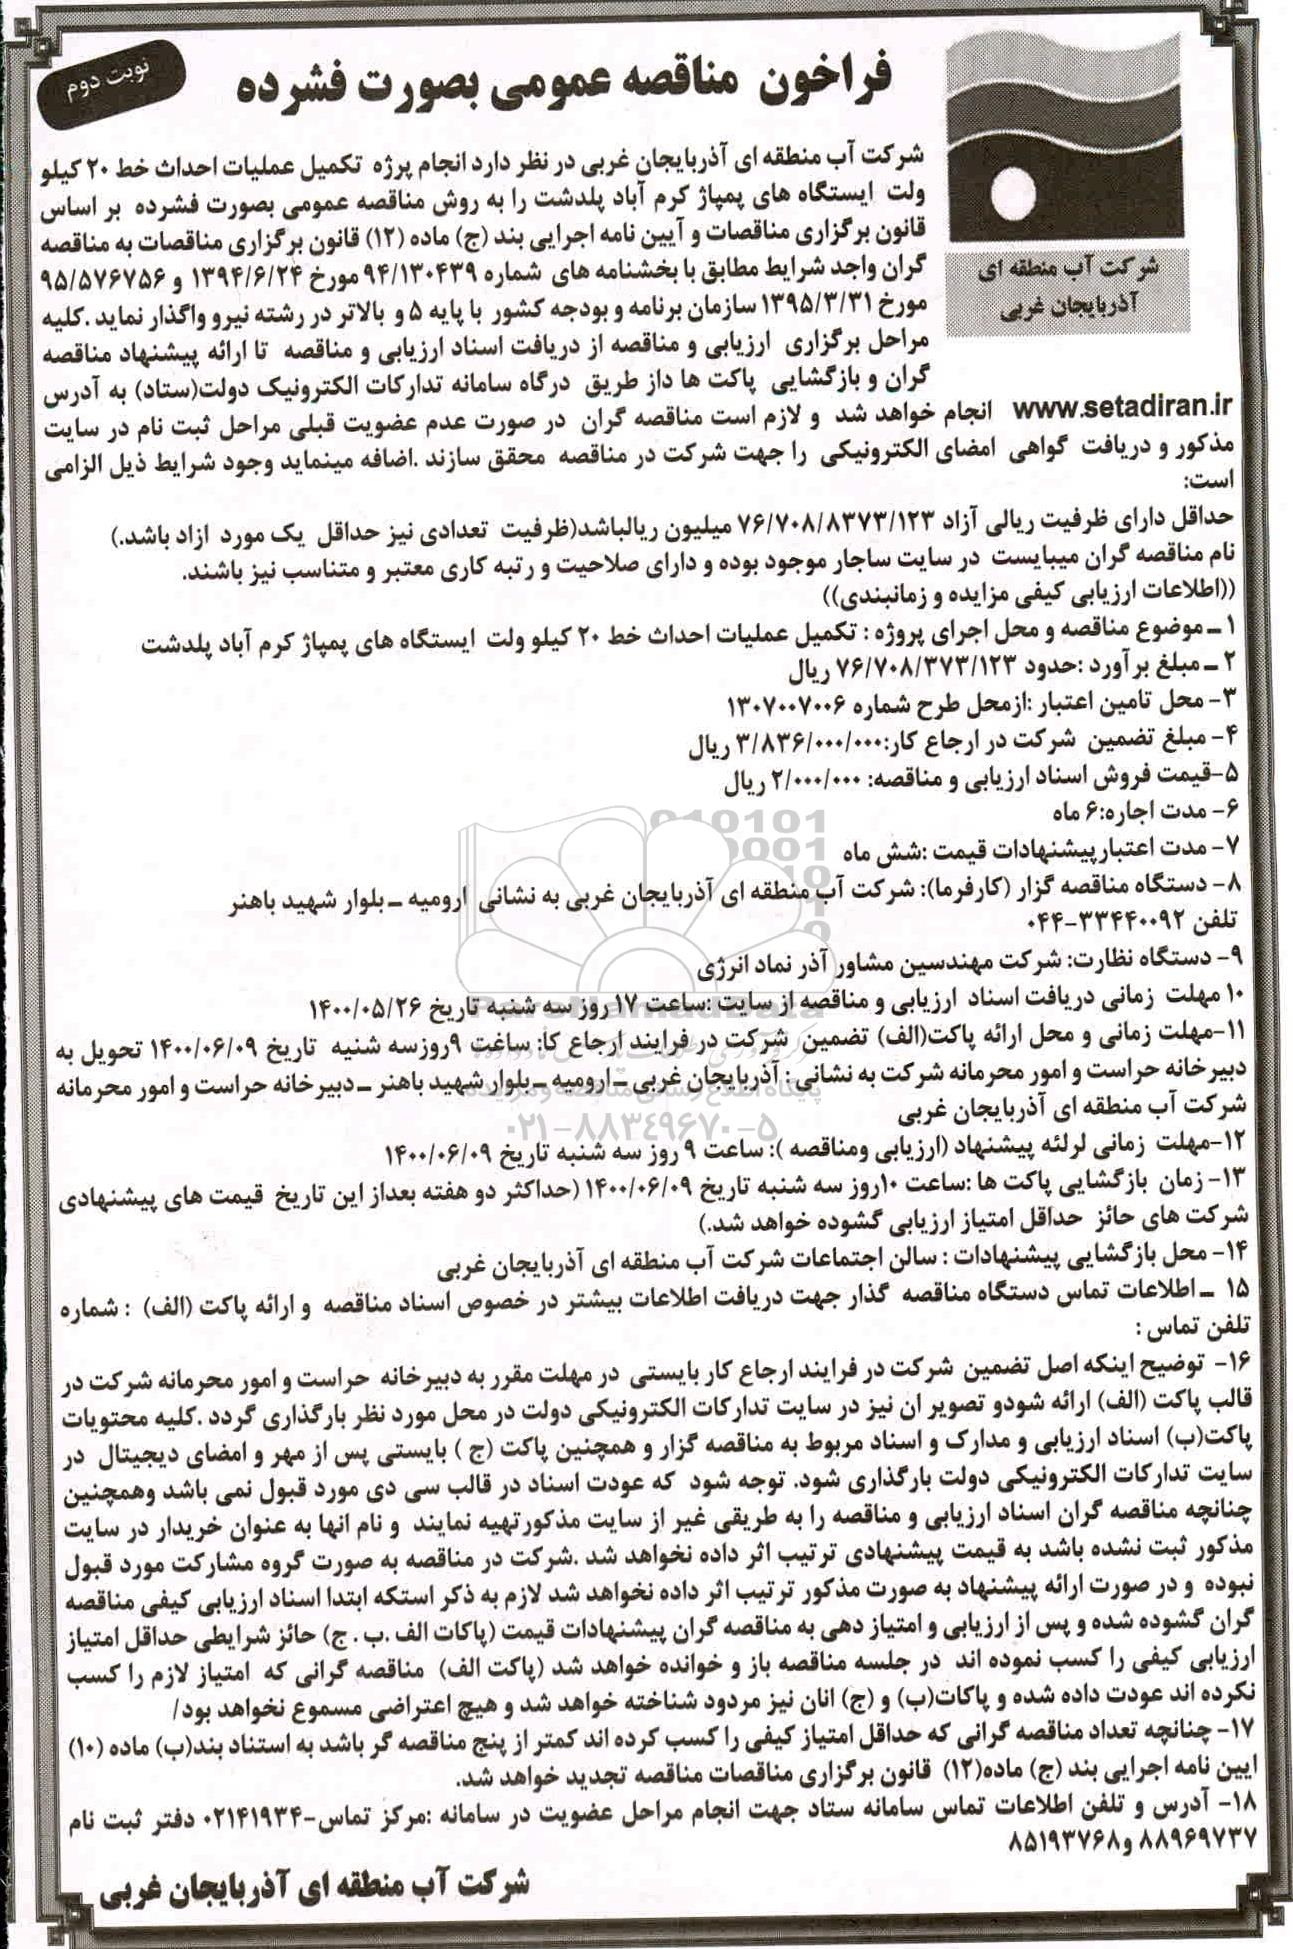 نوبت دوم
فراخون مناقصه عمومی بصورت فشرده
شرکت آب منطقه ای
آذربایجان غربی
شرکت آب منطقه ای آذربایجان غربی در نظر دارد انجام پرژه تکمیل عملیات احداث خط ۲۰ کیلو
ولت ایستگاه های پمپاژ کرم آباد پلدشت را به روش مناقصه عمومی بصورت فشرده بر اساس
قانون برگزاری مناقصات و آیین نامه اجرایی بند (ج) ماده (۱۲) قانون برگزاری مناقصات به مناقصه
گران واجد شرایط مطابق با بخشنامه های شماره ۹۴/۱۳۰۴۳۹ مورخ ۱۳۹۴/۶/۲۴ و ۹۵/۵۷۶۷۵۶
مورخ ۱۳۹۵/۳/۳۱ سازمان برنامه و بودجه کشور با پایه ۵ و بالاتر در رشته نیرو واگذار نماید .کلیه
مراحل برگزاری ارزیابی و مناقصه از دریافت اسناد ارزیابی و مناقصه تا ارائه پیشنهاد مناقصه
گران و بازگشایی پاکت ها داز طریق درگاه سامانه تدارکات الکترونیک دولت(ستاد) به آدرس
www.setadiran.ir انجام خواهد شد و لازم است مناقصه گران در صورت عدم عضویت قبلی مراحل ثبت نام در سایت
مذکور و دریافت گواهی امضای الکترونیکی را جهت شرکت در مناقصه محقق سازند .اضافه مینماید وجود شرایط ذیل الزامی
است:
حداقل دارای ظرفیت ریالی آزاد ۷۶/۷۰۸/۸۳۷۳/۱۲۳ میلیون ریالباشد(ظرفیت تعدادی نیز حداقل یک مورد ازاد باشد.)
نام مناقصه گران میبایست در سایت ساجار موجود بوده و دارای صلاحیت و رتبه کاری معتبر و متناسب نیز باشند.
((اطلاعات ارزیابی کیفی مزایده و زمانبندی))
۱ ـ موضوع مناقصه و محل اجرای پروژه : تکمیل عملیات احداث خط ۲۰ کیلو ولت ایستگاه های پمپاژ کرم آباد پلدشت
۲ ـ مبلغ برآورد :حدود ۷۶/۷۰۸/۳۷۳/۱۲۳ ریال
۳- محل تامین اعتبار :ازمحل طرح شماره ۱۳۰۷۰۰۷۰۰۶
۴- مبلغ تضمین شرکت در ارجاع کار:۳/۸۳۶/۰۰۰/۰۰۰ ریال
۵-قیمت فروش اسناد ارزیابی و مناقصه: ۲/۰۰۰/۰۰۰ ریال
۶- مدت اجاره:۶ ماه
۷- مدت اعتبارپیشنهادات قیمت :شش ماه
۸- دستگاه مناقصه گزار (کارفرما): شرکت آب منطقه ای آذربایجان غربی به نشانی ارومیه ـ بلوار شهید باهنر
تلفن ۳۳۴۴۰۰۹۲-۰۴۴
۹- دستگاه نظارت: شرکت مهندسین مشاور آذر نماد انرژی
۱۰ مهلت زمانی دریافت اسناد ارزیابی و مناقصه از سایت :ساعت ۱۷ روز سه شنبه تاریخ ۱۴۰۰/۰۵/۲۶
۱۱-مهلت زمانی و محل ارائه پاکت(الف) تضمین شرکت در فرایند ارجاع کا: ساعت ۹روزسه شنبه تاریخ ۱۴۰۰/۰۶/۰۹ تحویل به
دبیرخانه حراست و امور محرمانه شرکت به نشانی : آذربایجان غربی ـ ارومیه ـ بلوار شهید باهنر ـ دبیرخانه حراست و امور محرمانه
شرکت آب منطقه ای آذربایجان غربی
۱۲-مهلت زمانی لرلئه پیشنهاد (ارزیابی ومناقصه ): ساعت ۹ روز سه شنبه تاریخ ۱۴۰۰/۰۶/۰۹
۱۳- زمان بازگشایی پاکت ها :ساعت ۱۰روز سه شنبه تاریخ ۱۴۰۰/۰۶/۰۹ (حداکثر دو هفته بعداز این تاریخ قیمت های پیشنهادی
شرکت های حائز حداقل امتیاز ارزیابی گشوده خواهد شد.)
۱۴- محل بازگشایی پیشنهادات : سالن اجتماعات شرکت آب منطقه ای آذربایجان غربی
۱۵ ـ اطلاعات تماس دستگاه مناقصه گذار جهت دریافت اطلاعات بیشتر در خصوص اسناد مناقصه و ارائه پاکت (الف) : شماره
تلفن تماس :
۱۶- توضیح اینکه اصل تضمین شرکت در فرایند ارجاع کار بایستی در مهلت مقرر به دبیرخانه حراست و امور محرمانه شرکت در
قالب پاکت (الف) ارائه شودو تصویر ان نیز در سایت تدارکات الکترونیکی دولت در محل مورد نظر بارگذاری گردد .کلیه محتویات
پاکت(ب) اسناد ارزیابی و مدارک و اسناد مربوط به مناقصه گزار و همچنین پاکت (ج ) بایستی پس از مهر و امضای دیجیتال در
سایت تدارکات الکترونیکی دولت بارگذاری شود. توجه شود که عودت اسناد در قالب سی دی مورد قبول نمی باشد وهمچنین
چنانچه مناقصه گران اسناد ارزیابی و مناقصه را به طریقی غیر از سایت مذکورتهیه نمایند و نام انها به عنوان خریدار در سایت
مذکور ثبت نشده باشد به قیمت پیشنهادی ترتیب اثر داده نخواهد شد .شرکت در مناقصه به صورت گروه مشارکت مورد قبول
نبوده و در صورت ارائه پیشنهاد به صورت مذکور ترتیب اثر داده نخواهد شد لازم به ذکر استکه ابتدا اسناد ارزیابی کیفی مناقصه
گران گشوده شده و پس از ارزیابی و امتیاز دهی به مناقصه گران پیشنهادات قیمت (پاکات الف .ب . ج) حائز شرایطی حداقل امتیاز
ارزیابی کیفی را کسب نموده اند در جلسه مناقصه باز و خوانده خواهد شد (پاکت الف) مناقصه گرانی که امتیاز لازم را کسب
نکرده اند عودت داده شده و پاکات(ب) و (ج) انان نیز مردود شناخته خواهد شد و هیچ اعتراضی مسموع نخواهد بود/
۱۷- چنانچه تعداد مناقصه گرانی که حداقل امتیاز کیفی را کسب کرده اند کمتر از پنج مناقصه گر باشد به استناد بند(ب) ماده (۱۰)
ایین نامه اجرایی بند (ج) ماده(۱۲) قانون برگزاری مناقصات مناقصه تجدید خواهد شد.
۱۸- آدرس و تلفن اطلاعات تماس سامانه ستاد جهت انجام مراحل عضویت در سامانه :مرکز تماس-۰۲۱۴۱۹۳۴ دفتر ثبت نام
۸۸۹۶۹۷۳۷ و۸۵۱۹۳۷۶۸
شرکت آب منطقه ای آذربایجان غربی
ParsNamadData
پایگاه اطلاع رسانی مناقصه و مزایده
۰۲۱-۸۸۳۴۹۶۷۰-۵